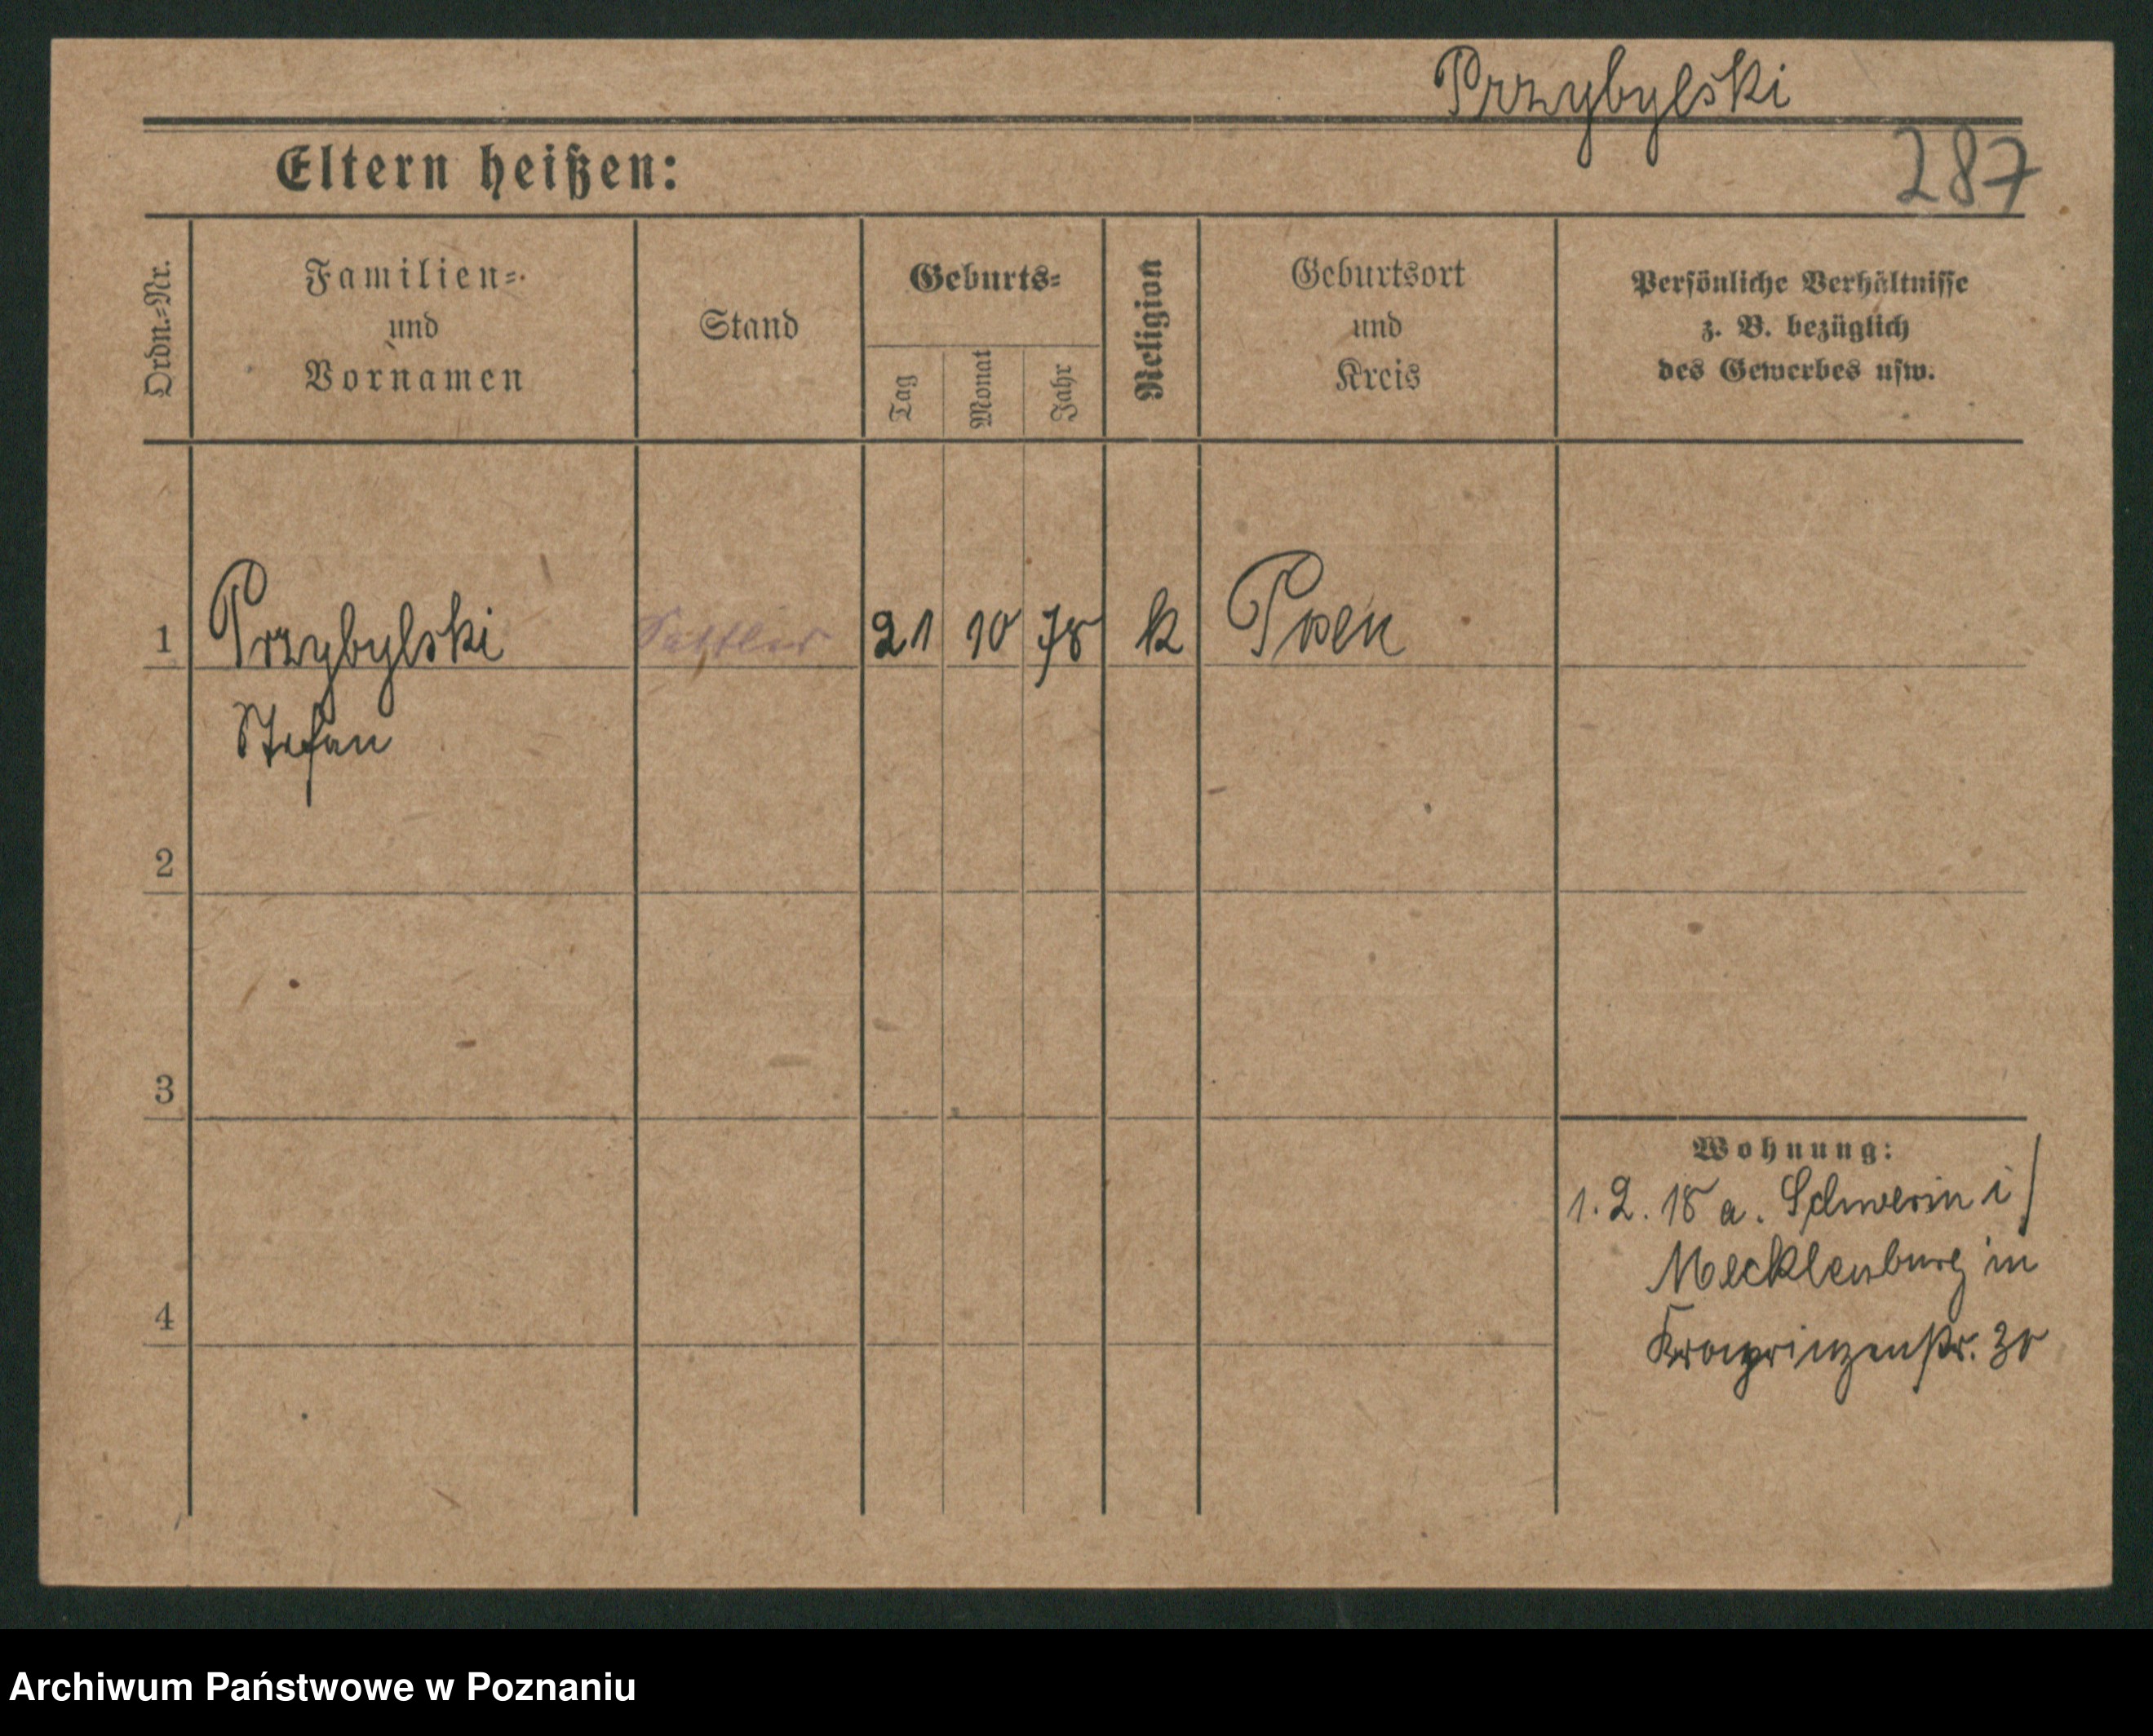 Przybylski
Eltern heißen:
287
Ordn.=Nr.
Familien=
und
Vornamen
Stand
Geburts=
Tag
Monat
Jahr
Religion
Geburtsort
und
Kreis
Persönliche Verhältnisse
z. B. bezüglich
des Gewerbes usw.
1 Przybylski Sattler 21 10 78 k Posen
Stefan
2
3
Wohnung:
1. 2. 18 a. Schwerin i/
Mecklenburg in
4
Kronprinzenstr. 30
Archiwum Państwowe w Poznaniu